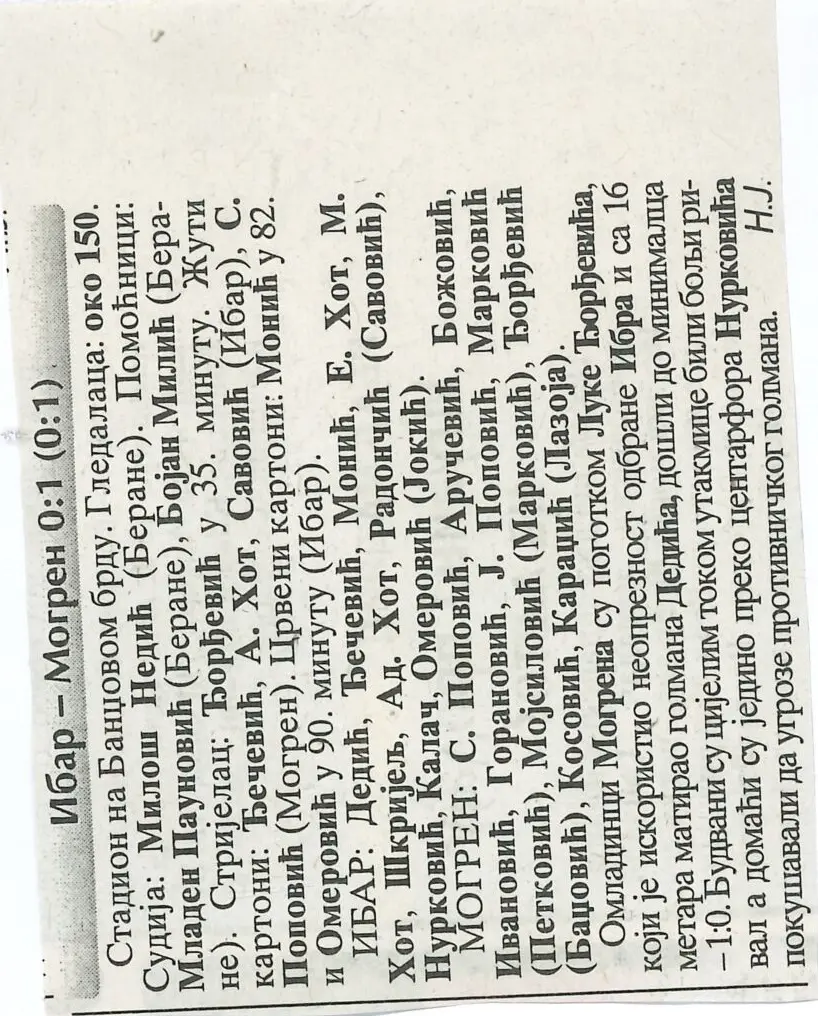 Ибар – Могрен 0:1 (0:1)
Стадион на Банцовом брду. Гледалаца: око 150.
Судија: Милош Недић (Беране). Помоћници:
Младен Пауновић (Беране), Бојан Милић (Бера-
не). Стријелац: Ђорђевић у 35. минуту. Жути
картони: Ђечевић, А. Хот, Савовић (Ибар), С.
Поповић (Могрен). Црвени картони: Монић у 82.
и Омеровић у 90. минуту (Ибар).
ИБАР: Дедић, Ђечевић, Монић, Е. Хот, М.
Хот, Шкријељ, Ад. Хот, Радончић (Савовић),
Нурковић, Калач, Омеровић (Јокић).
МОГРЕН: С. Поповић, Аручевић, Божовић,
Ивановић, Горановић, Ј. Поповић, Марковић
(Петковић), Мојсиловић (Марковић), Ђорђевић
(Бацовић), Косовић, Караџић (Лазоја).
Омладинци Могрена су поготком Луке Ђорђевића,
који је искористио неопрезност одбране Ибра и са 16
метара матирао голмана Дедића, дошли до минималца
–1:0. Будвани су цијелим током утакмице били бољи ри-
вал а домаћи су једино преко центарфора Нурковића
покушавали да угрозе противничког голмана.
Н.Ј.